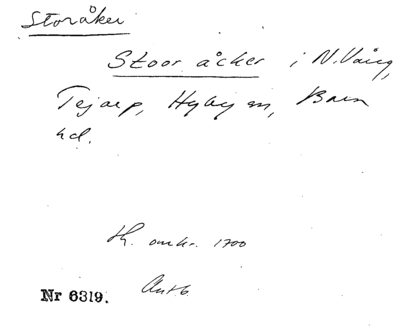 Storåker
Stoor åcker i N. Vång,
Tejarp, Hyby sn, Bara
hd.
th. omkr. 1700
Antb.
Nr 6319.